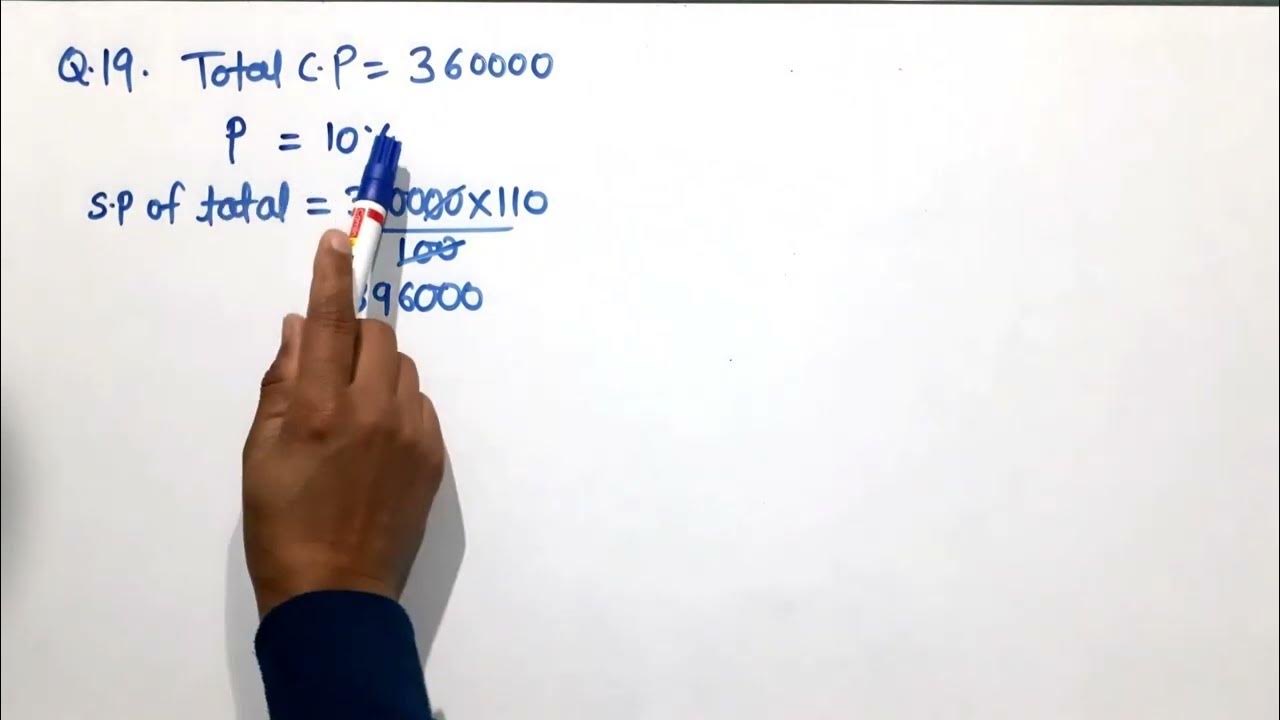 Q.19. Total C.P = 360000
P = 10%
S.P of total = 360000x110
100
396000